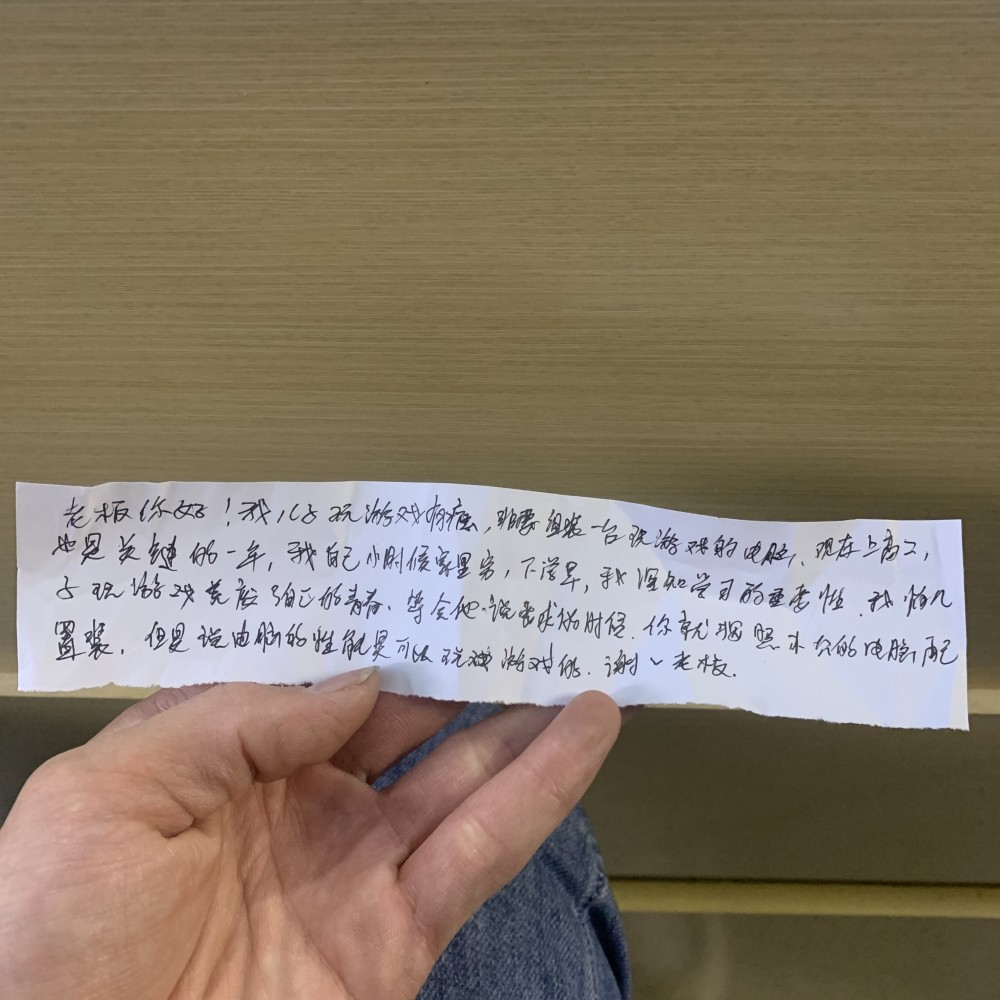 老板你好！我儿子玩游戏有瘾，非要组装一台玩游戏的电脑，现在上高二，
也是关键的一年，我自己小时候家里穷，下学早，我深知学习的重要性．我怕儿
子玩游戏荒废了自己的青春．等会他说要求的时候．你就按照办公的电脑配
置装，但是说电脑的性能是可以玩游戏的．谢谢老板．